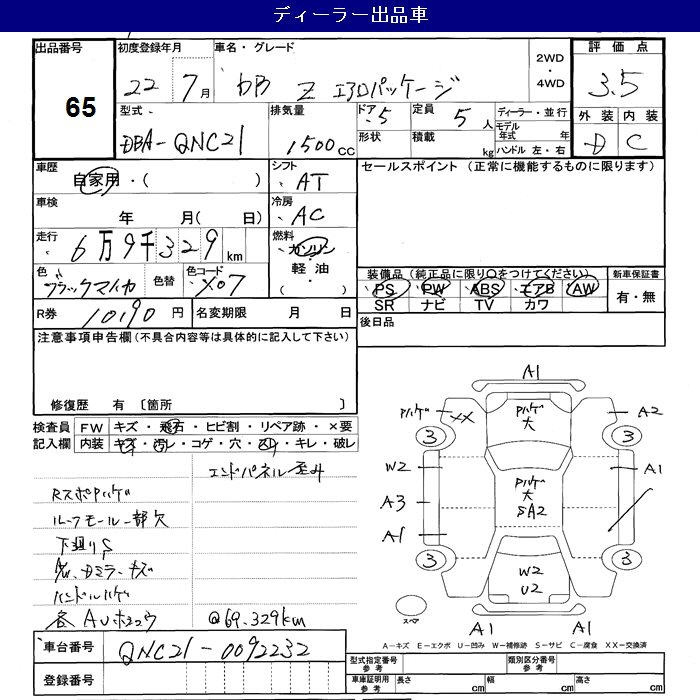 ディーラー出品車
出品番号
65
初度登録年月
22年 7月
車名・グレード
bB Z エアロパッケージ
2WD・4WD
評価点
3.5
外装 内装
D C
型式
DBA-QNC21
排気量
1500cc
ドア 5
形状
定員 5人
積載 kg
ディーラー・並行
モデル年式 年
ハンドル 左・右
車歴
自家用・( )
シフト
AT
セールスポイント (正常に機能するものに限ります)
車検
年 月( 日)
冷房
AC
走行
6万9千329km
燃料
ガソリン
軽油
( ・ )
色
ブラックマイカ
色替
色コード
X07
装備品(純正品に限り○をつけてください)
PS PW ABS エアB AW
SR ナビ TV カワ
新車保証書
有・無
R券 10190円
名変期限 月 日
後日品
注意事項申告欄(不具合内容等は具体的に記入して下さい)
修復歴 有 〔箇所 〕
検査員記入欄
FW キズ・飛石・ヒビ割・リペア跡・×要
内装 キズ・汚レ・コゲ・穴・スレ・キレ・破レ
エンドパネル歪み
Rスポハゲ
ルーフモール一部欠
下廻りS
ハンドルハゲ
各AU
@69.329km
車台番号
QNC21-0092232
登録番号
A1
ハゲ
XX
ハゲ大
A2
3
3
W2
A3
A1
ハゲ大
SA2
A1
3
3
W2
U2
スペア
A1
A1
A-キズ E-エクボ U-凹み W-補修跡 S-サビ C-腐食 XX-交換済
型式指定番号
参考
類別区分番号
参考
車庫証明用
参考
長さ cm
幅 cm
高さ cm